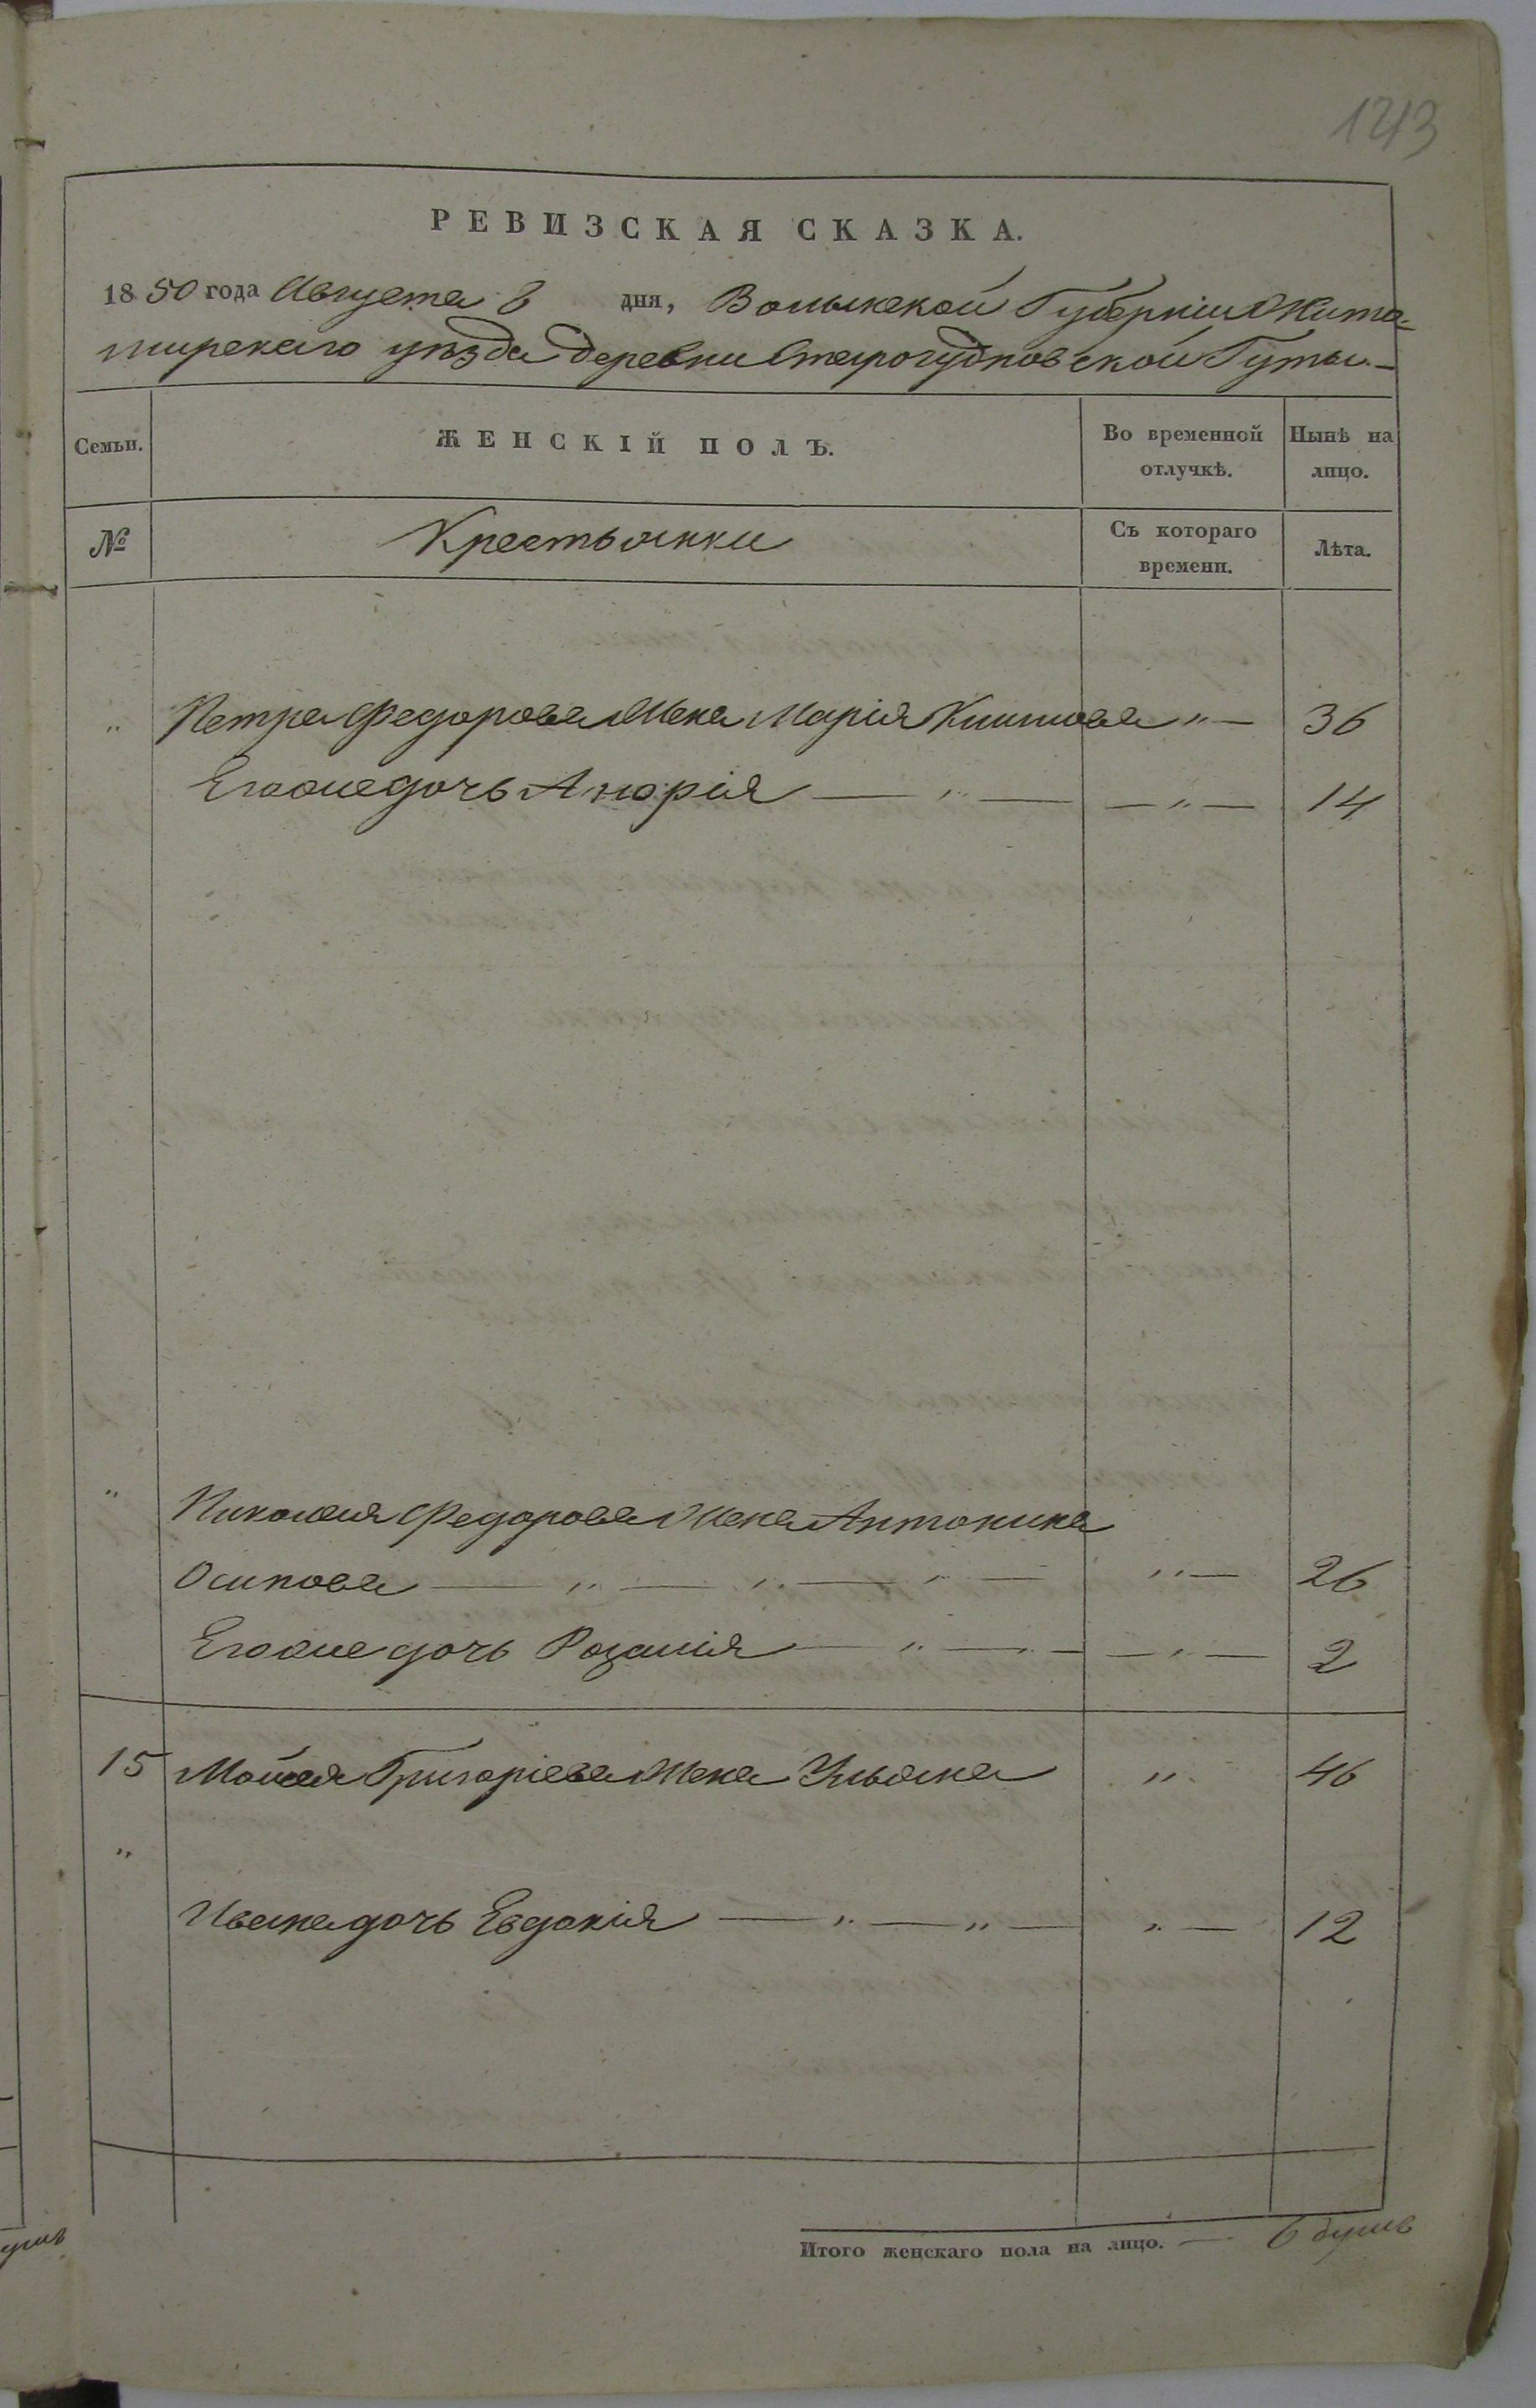 143
РЕВИЗСКАЯ СКАЗКА.
1850 года Августа 8 дня, Волынской Губерніи Жито-
мирскаго уѣзда деревни Старочудновской Гуты.—
Семьи.
ЖЕНСКІЙ ПОЛЪ.
Во временной отлучкѣ.
Нынѣ на лицо.
№
Крестьянки
Съ котораго времени.
Лѣта.
" Петра Федорова Жена Марія " — 36
Его же дочь — " — — " — 14
" Николая Федорова Жена Антонина
Осипова — " — " — " — " — 26
Его же дочь Розалія — " — " — — " — 2
15 Мойсея Григоріева Жена Ульяна " 46
"
Ивана дочь Евдокія — " — " — " — 12
Итого женскаго пола на лицо. — 6 душъ